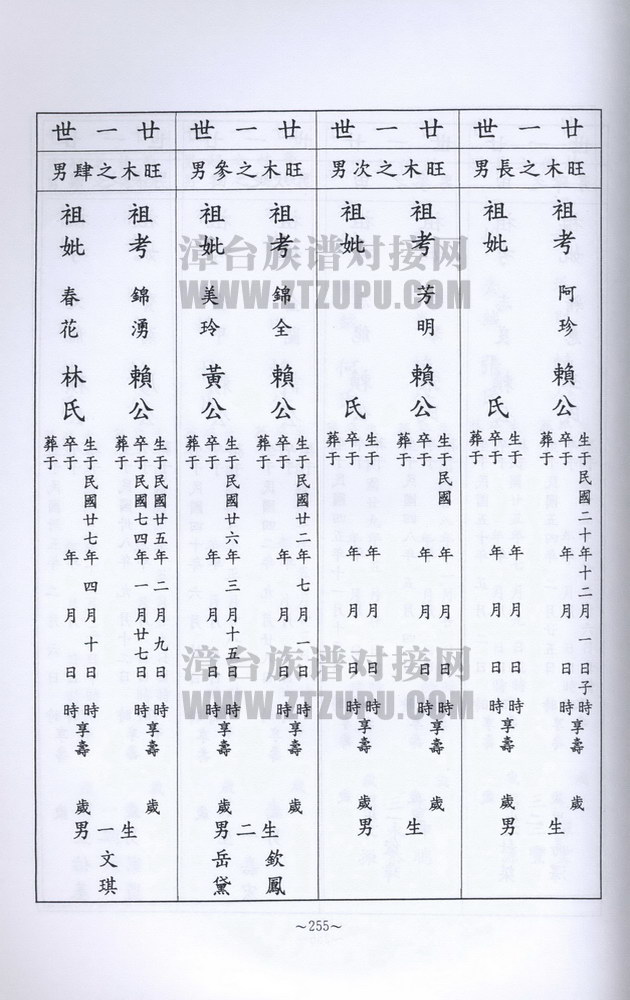 廿一世
旺木之長男
祖考 阿珍 賴公
生于民國二十年十二月一日子時
卒于 年 月 日 時享壽 歲
葬于
祖妣 氏
生于 年 月 日 時
卒于 年 月 日 時享壽 歲
葬于
生 男
廿一世
旺木之次男
祖考 芳明 賴公
生于民國 年 月 日 時
卒于 年 月 日 時享壽 歲
葬于
祖妣 氏
生于 年 月 日 時
卒于 年 月 日 時享壽 歲
葬于
生 男
廿一世
旺木之參男
祖考 錦全 賴公
生于民國廿二年七月一日 時
卒于 年 月 日 時享壽 歲
葬于
祖妣 美玲 黃公
生于民國廿六年三月十五日 時
卒于 年 月 日 時享壽 歲
葬于
生二男
欽鳳
岳黛
廿一世
旺木之肆男
祖考 錦湧 賴公
生于民國廿五年二月九日 時
卒于民國七四年一月廿七日 時享壽 歲
葬于
祖妣 春花 林氏
生于民國廿七年四月十日 時
卒于 年 月 日 時享壽 歲
葬于
生一男
文琪
～255～
漳台族谱对接网
WWW.ZTZUPU.COM
漳台族谱对接网
WWW.ZTZUPU.COM